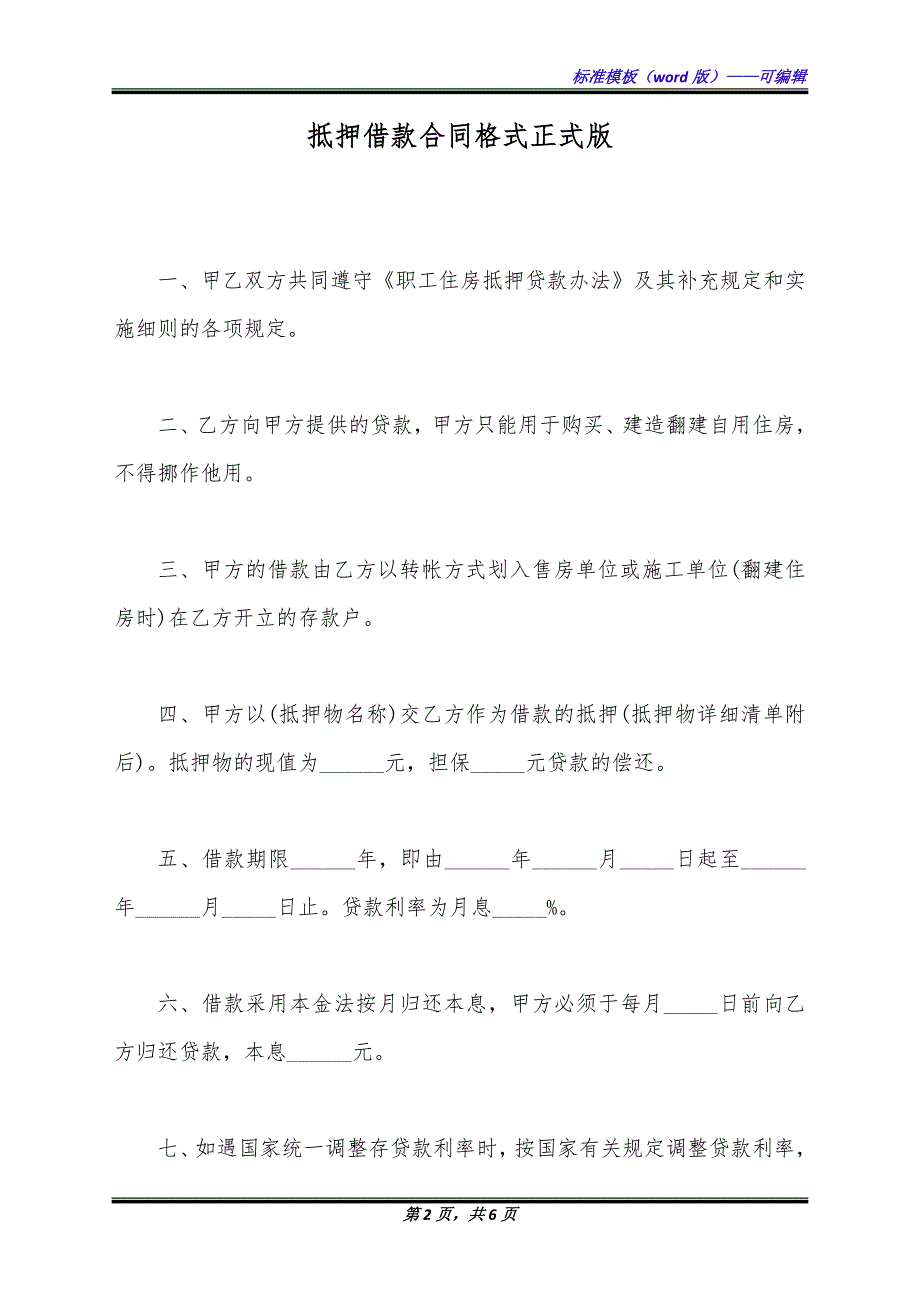 标准模板（word 版）——可编辑
抵押借款合同格式正式版
一、甲乙双方共同遵守《职工住房抵押贷款办法》及其补充规定和实
施细则的各项规定。
二、乙方向甲方提供的贷款，甲方只能用于购买、建造翻建自用住房，
不得挪作他用。
三、甲方的借款由乙方以转帐方式划入售房单位或施工单位(翻建住
房时)在乙方开立的存款户。
四、甲方以(抵押物名称)交乙方作为借款的抵押(抵押物详细清单附
后)。抵押物的现值为______元，担保_____元贷款的偿还。
五、借款期限______年，即由______年______月_____日起至______
年______月_____日止。贷款利率为月息_____%。
六、借款采用本金法按月归还本息，甲方必须于每月_____日前向乙
方归还贷款，本息______元。
七、如遇国家统一调整存贷款利率时，按国家有关规定调整贷款利率，
第 2 页，共 6 页